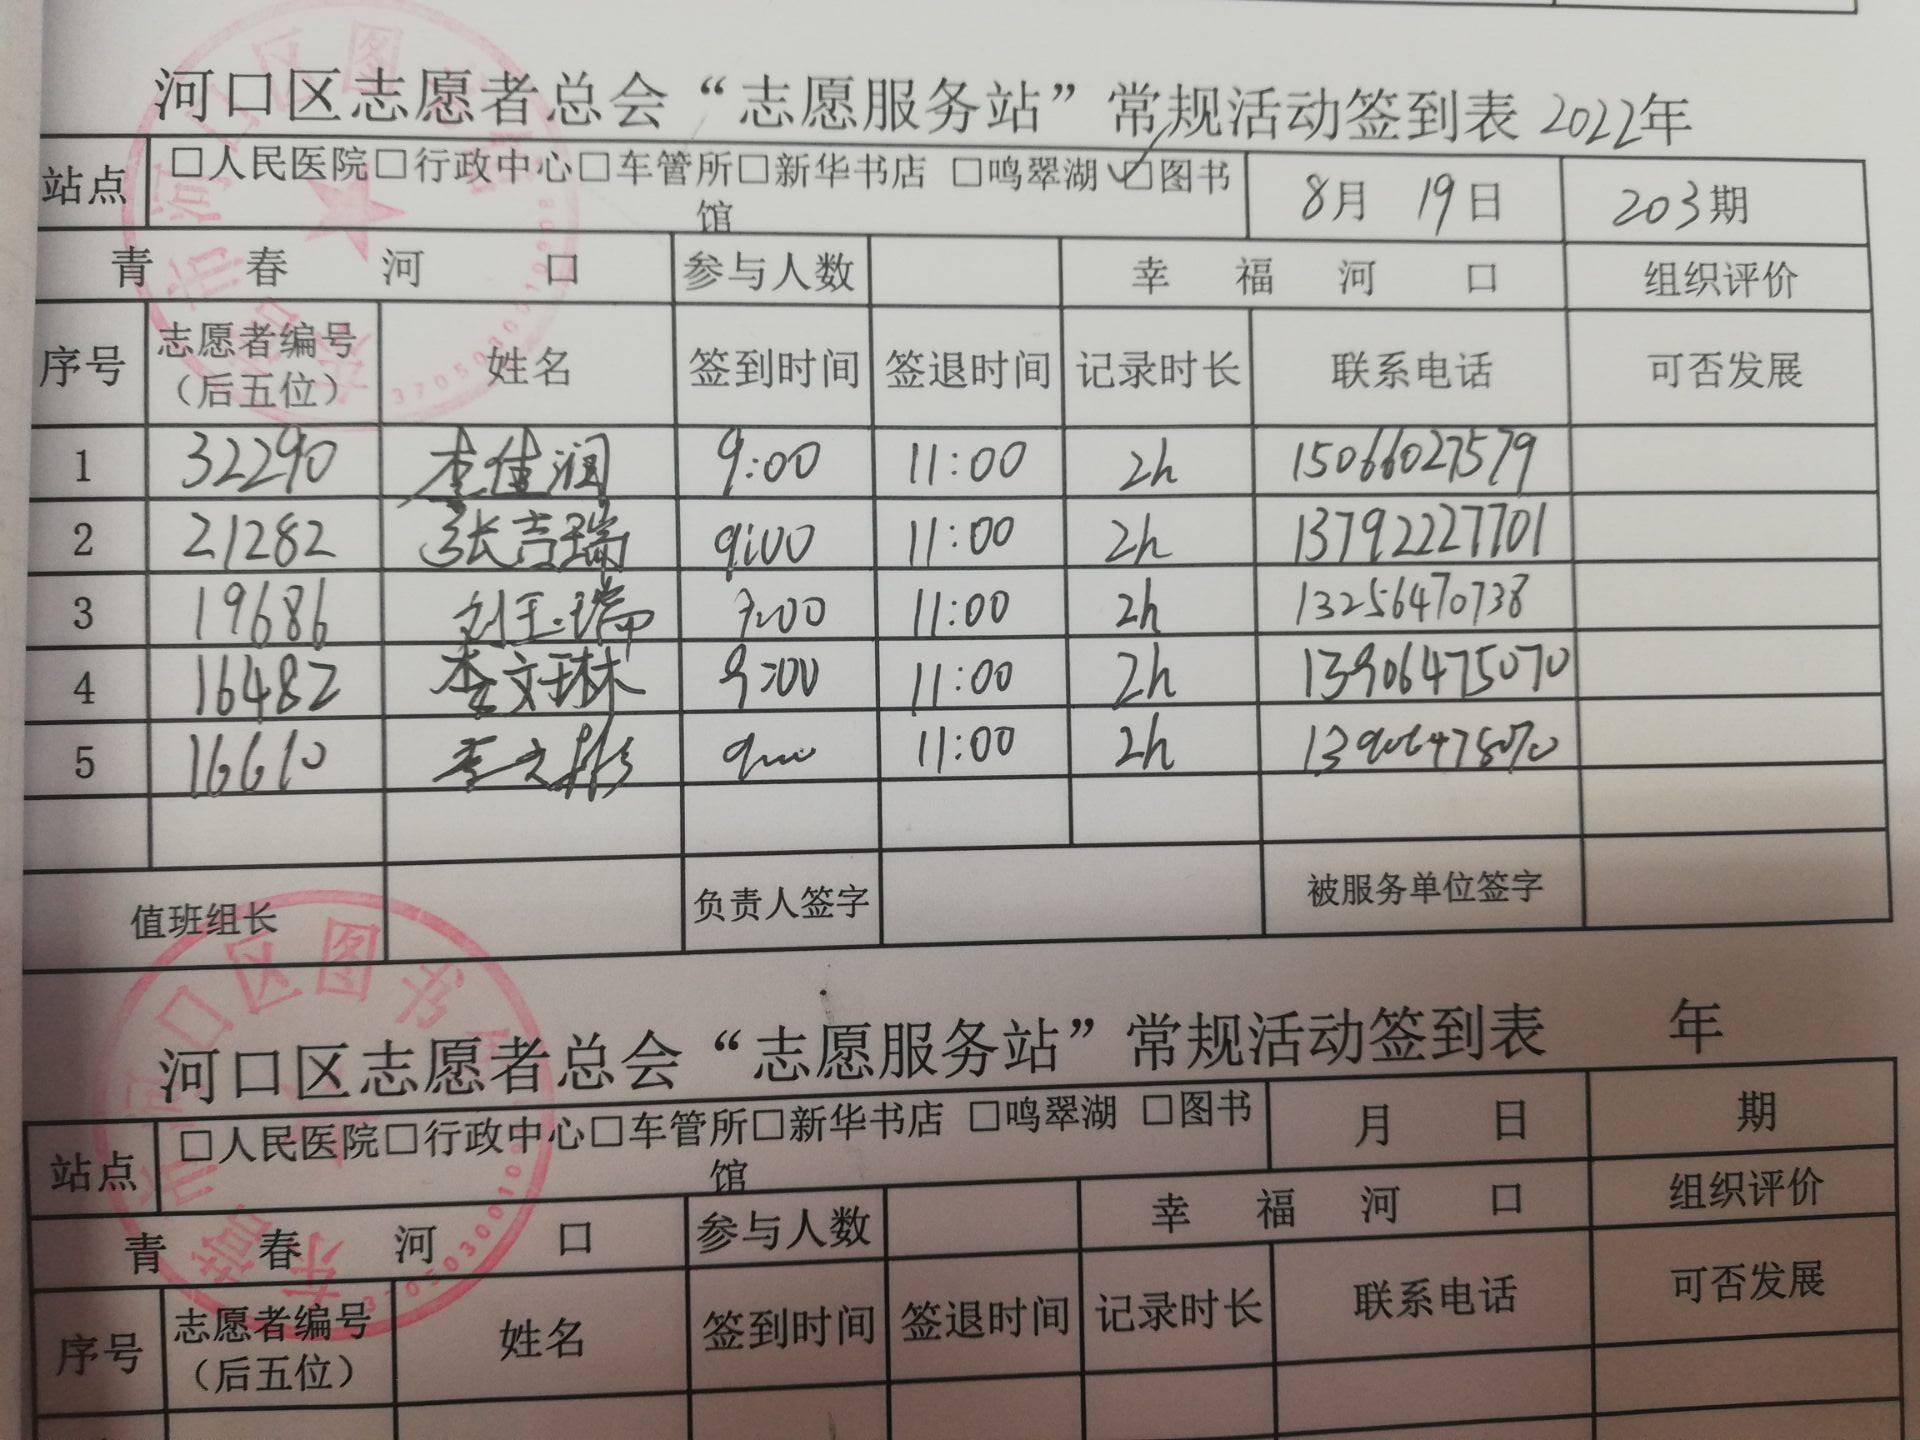 河口区志愿者总会“志愿服务站”常规活动签到表 2022年
站点 □人民医院□行政中心□车管所□新华书店 □鸣翠湖 ☑图书馆 8月 19日 203期
青春河口 参与人数 幸福河口 组织评价
序号 志愿者编号（后五位） 姓名 签到时间 签退时间 记录时长 联系电话 可否发展
1 32290 李佳润 9:00 11:00 2h 15066027579
2 21282 张吉瑞 9:00 11:00 2h 13792227701
3 19686 刘玉瑞 11:00 2h 13256470738
4 16482 李文琳 9:00 11:00 2h 13906475070
5 16610 李文彬 11:00 2h 13906475070
值班组长 负责人签字 被服务单位签字
河口区志愿者总会“志愿服务站”常规活动签到表 年
站点 □人民医院□行政中心□车管所□新华书店 □鸣翠湖 □图书馆 月 日 期
青春河口 参与人数 幸福河口 组织评价
序号 志愿者编号（后五位） 姓名 签到时间 签退时间 记录时长 联系电话 可否发展